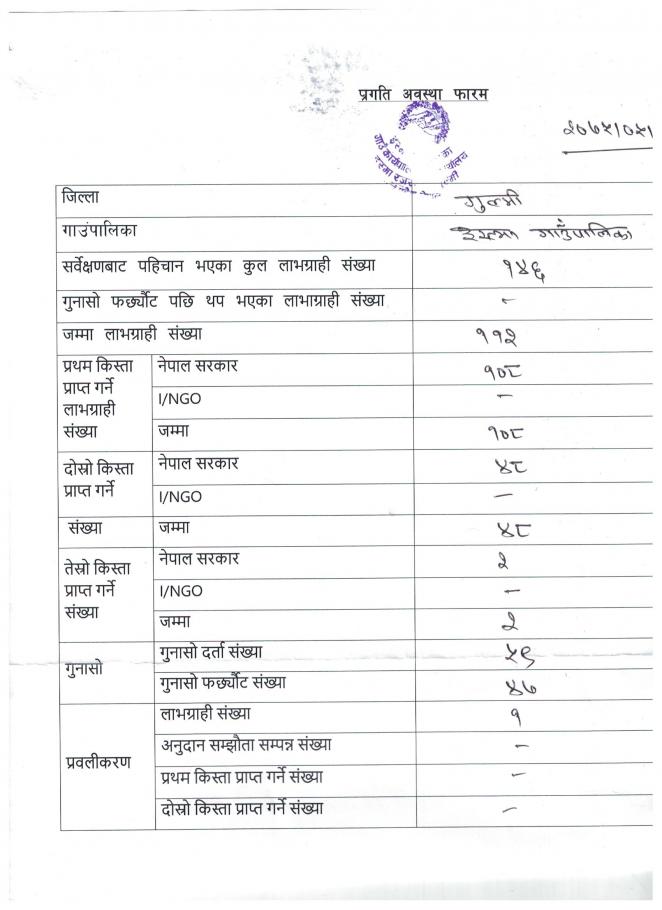 प्रगति अवस्था फारम
२०७५/०५/
जिल्ला गुल्मी
गाउंपालिका इस्मा गाउँपालिका
सर्वेक्षणबाट पहिचान भएका कुल लाभग्राही संख्या १४६
गुनासो फर्छ्यौट पछि थप भएका लाभाग्राही संख्या -
जम्मा लाभग्राही संख्या ११२
प्रथम किस्ता
प्राप्त गर्ने
लाभग्राही
संख्या
नेपाल सरकार १०८
I/NGO -
जम्मा १०८
दोस्रो किस्ता
प्राप्त गर्ने
संख्या
नेपाल सरकार ४८
I/NGO -
जम्मा ४८
तेस्रो किस्ता
प्राप्त गर्ने
संख्या
नेपाल सरकार २
I/NGO -
जम्मा २
गुनासो
गुनासो दर्ता संख्या ५९
गुनासो फर्छ्यौट संख्या ४७
प्रवलीकरण
लाभग्राही संख्या १
अनुदान सम्झौता सम्पन्न संख्या -
प्रथम किस्ता प्राप्त गर्ने संख्या -
दोस्रो किस्ता प्राप्त गर्ने संख्या -